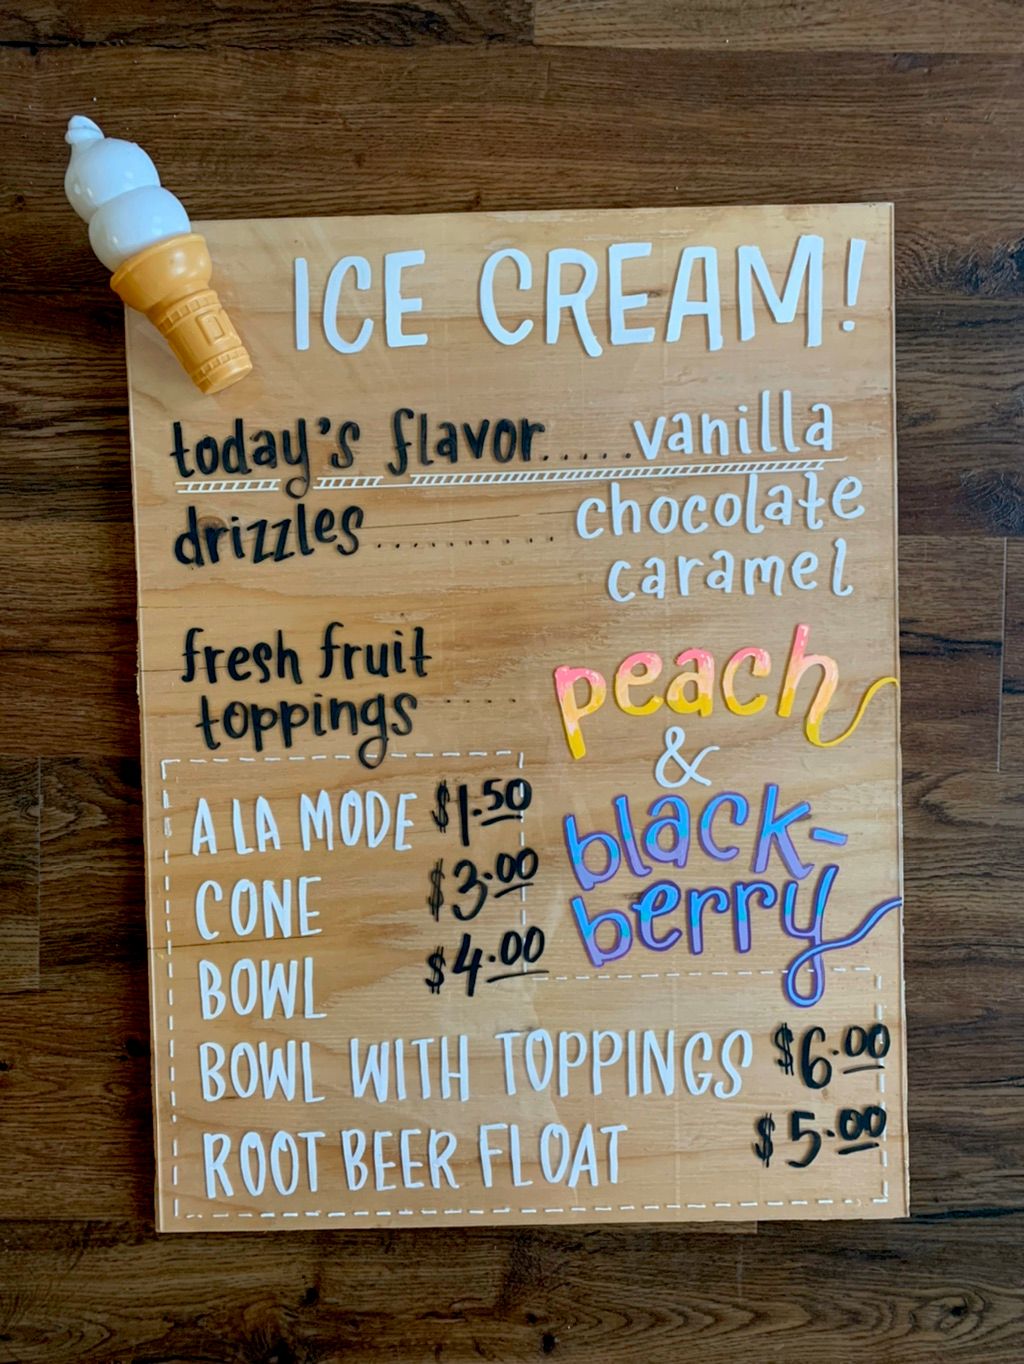 ICE CREAM!
today's flavor.....vanilla
drizzles.........chocolate
caramel
fresh fruit
toppings....peach
&
black-
berry
A LA MODE $1.50
CONE $3.00
BOWL $4.00
BOWL WITH TOPPINGS $6.00
ROOT BEER FLOAT $5.00